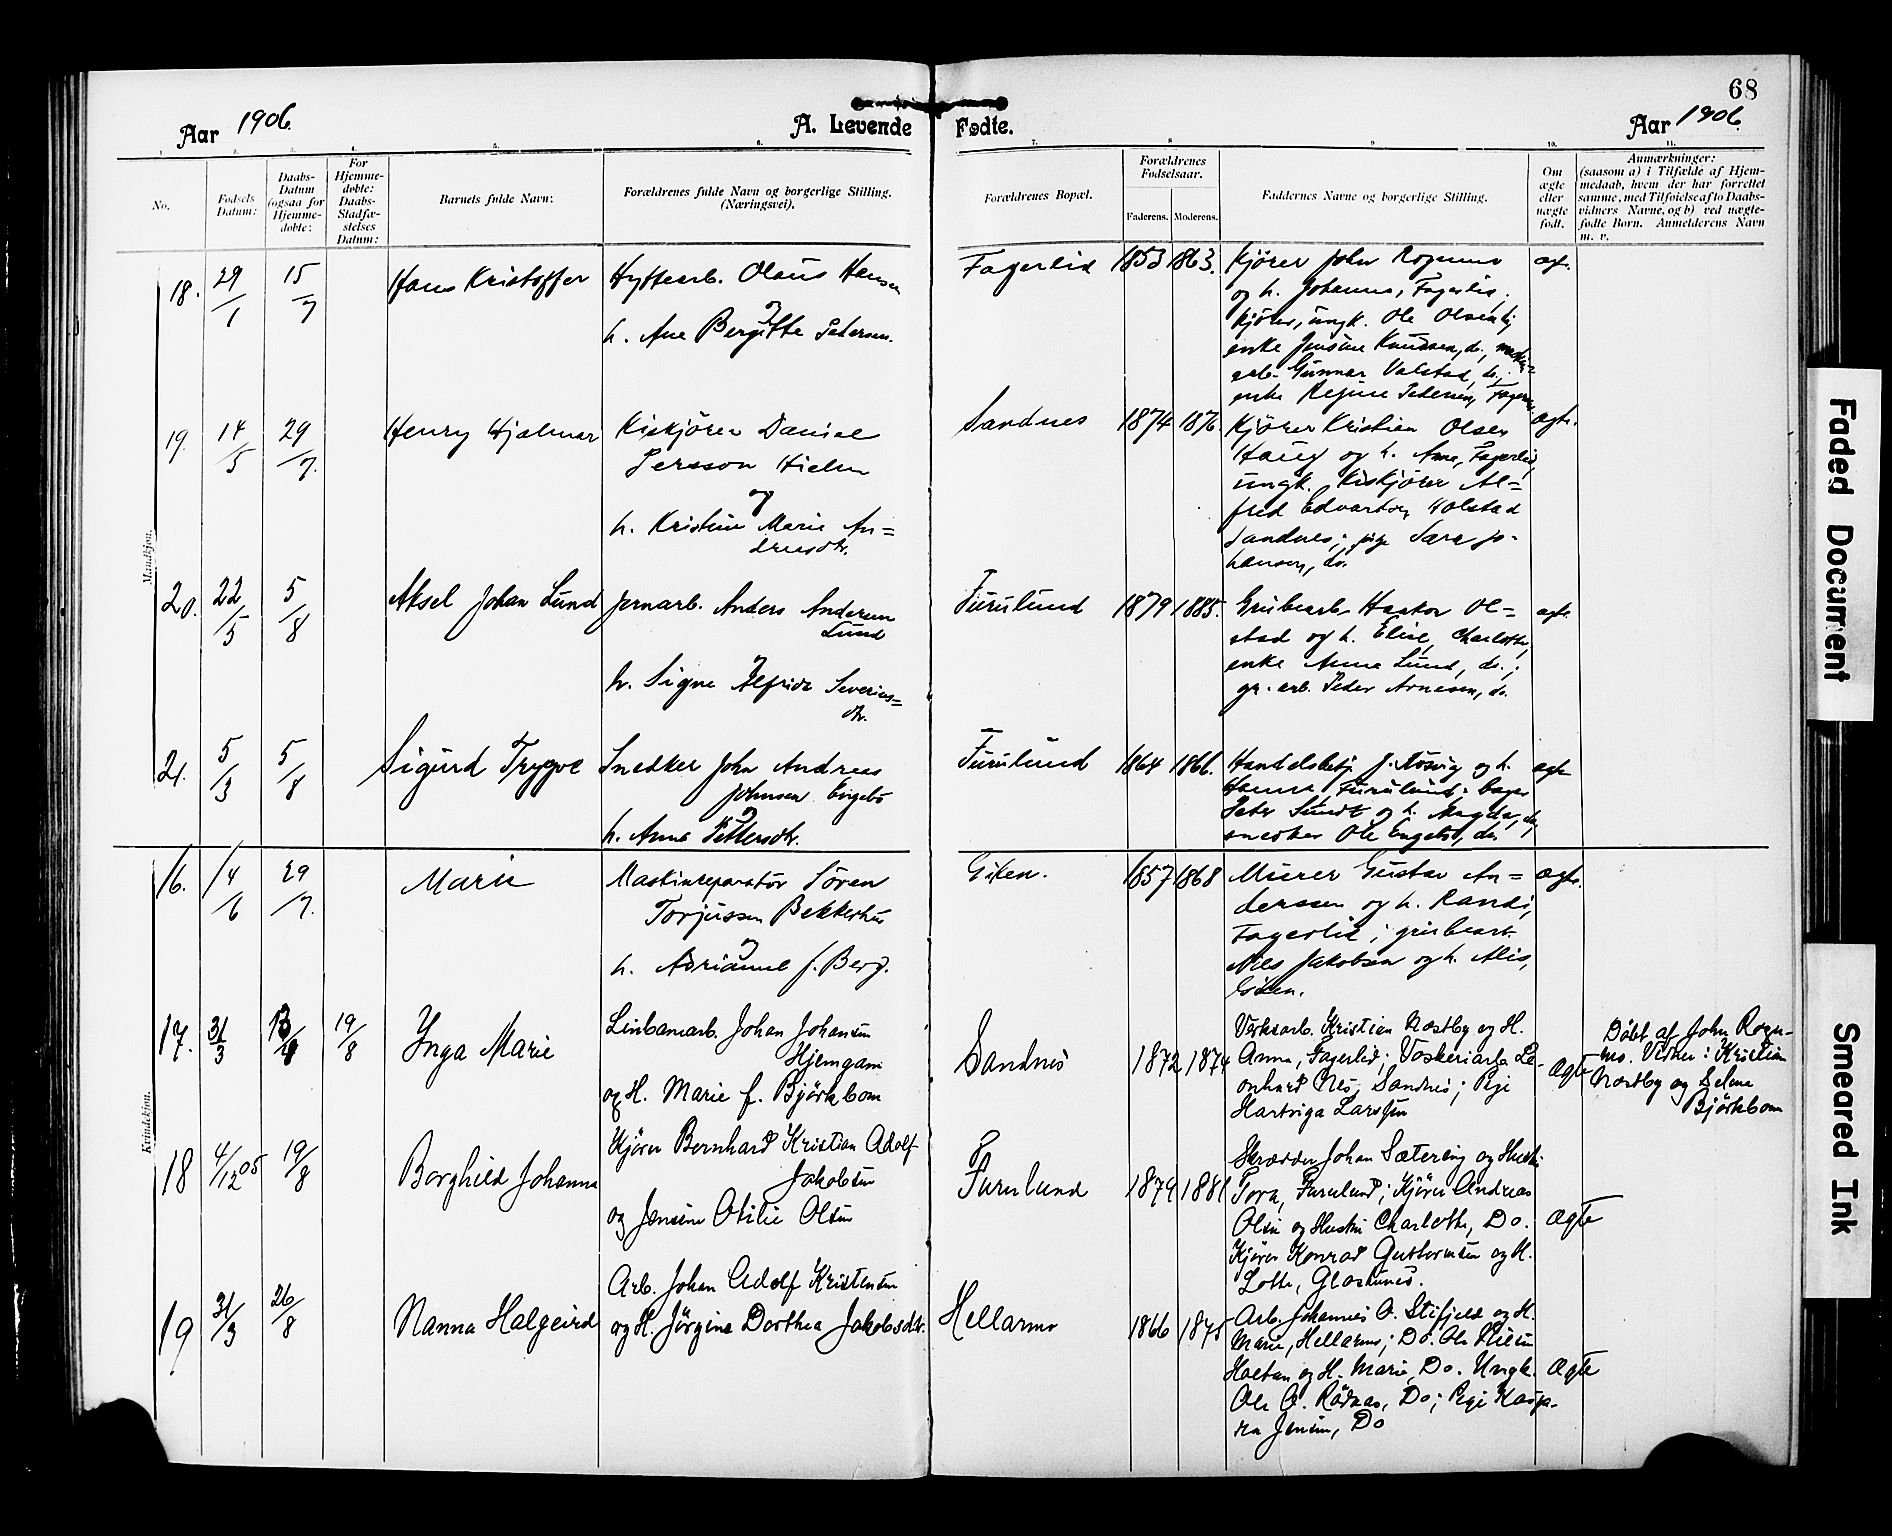 68
Aar 1906. A. Levende Fødte. Aar 1906.
1. 2. 3. 4. 5. 6. 7. 8 9 10. 11.
No.
Fødsels
Datum:
Daabs-
Datum
(ogsaa for
Hjemme-
døbte:
For
Hjemme-
døbte:
Daabs-
Stadfæ-
stelses
Datum:
Barnets fulde Navn:
Forældrenes fulde Navn og borgerlige Stilling.
(Næringsvei).
Forældrenes Bopæl.
Forældrenes
Fødselsaar.
Faderens. Moderens.
Faddernes Navne og borgerlige Stilling.
Om
ægte
eller
uægte
født.
Anmærkninger:
(saasom a) i Tilfælde af Hjem-
medaab, hvem der har forrettet
samme, med Tilføielse af to Daabs-
vidners Navne, og b) ved uægte-
fødte Børn. Anmelderens Navn
m. v.
Mandkjøn.
18. 29/1 15/7 Hans Kristoffer
Hyttearb. Olaus Hansen
og
h. Ane Bergitte Petersen.
Fagerlid 1853 1863.
Kjører John Rognmo
og h. Johanna, Fagerlid.
kjører, ungk. Ole Olsen
enke Jensine Knudsen, do.,
arb. Gunnar Valstad, do.;
enke Regine Pedersen,
19. 14/5 29/7. Henry Hjalmar
Kiskjører Daniel
Persson Hielm
og
h. Kristine Marie An=
dreasdtr.
Sandnes 1874 1876.
Kjører Kristian Olsen
Haug og h. Anna, Fagerlid,
ungk. Kiskjører Al=
fred Edvartsen Holstad
Sandnes; pige Sara Jo-
hansen, do.
ægte.
20. 22/5 5/8 Aksel Johan Lund
Jernarb. Anders Andersen
Lund
og
h. Signe Alfrida Severins=
dtr.
Furulund 1879 1885.
Grubearb. Haakon Ol=
stad og h. Elise, Charlotta,
enke Anna Lund, do.;
gr. arb. Peder Arnesen, do.
ægte.
21. 5/3 5/8 Sigurd Trygve
Snedker John Andreas
Johnsen Engebø
og
h. Anna Pettersdtr.
Furulund 1864 1866.
Handelsbetj. J. Rösvig og h.
Hanna, Furulund; bager
Peter Sundt og h. Magda, do,
snedker Ole Engebø, do.
ægte
Kvindekjøn.
16. 14/6 29/7. Marie
Maskinreparatør Sören
Torjussen Bekkerhus
og
h. Adrianne f. Berg.
Giken. 1857 1868
Murer Gustav An=
derssen og h. Randi,
Fagerlid; grubearb.
Nils Jakobsen og h. Alis,
Giken.
ægte.
17. 31/3 19/8 Ynga Marie
Linbanearb. Johan Johansen
Hjemgam
og H. Marie f. Björkbom
Sandnes 1872 1874
Verksarb. Kristian Næstby og H.
Anna, Fagerlid; Vaskeriarb. Le-
onhard Nes, Sandnes; Pige
Hartviga Larssen
Ægte
Döbt af John Rogn-
mo. Vidner: Kristian
Næstby og Selma
Björkbom
18 4/12 05 19/8 Borghild Johanna
Kjører Bernhard Kristian Adolf
Jakobsen
og Jensine Otilie Olsen
Furulund 1879 1881
Skrædder Johan Sætering og Hustru
Tora, Furulund; Kjører Andreas
Olsen og Hustru Charlotte, Do.
Kjører Konrad Guttormsen og H.
Lotte, Glastunes.
Ægte
19 31/3 26/8 Nanna Halgeird
Arb. Johan Adolf Kristensen
og H. Jörgine Dorthea Jakobsdtr.
Hellarmo 1866 1875
Arb. Johannes O. Stifjeld og H.
Marie, Hellarmo; Do. Ole Nilsen
Holtan og H. Marie, Do. Ungk.
Ole O. Rødnas, Do; Pige Kasp-
ra Jensen, Do
Ægte
Faded Document
Smeared Ink